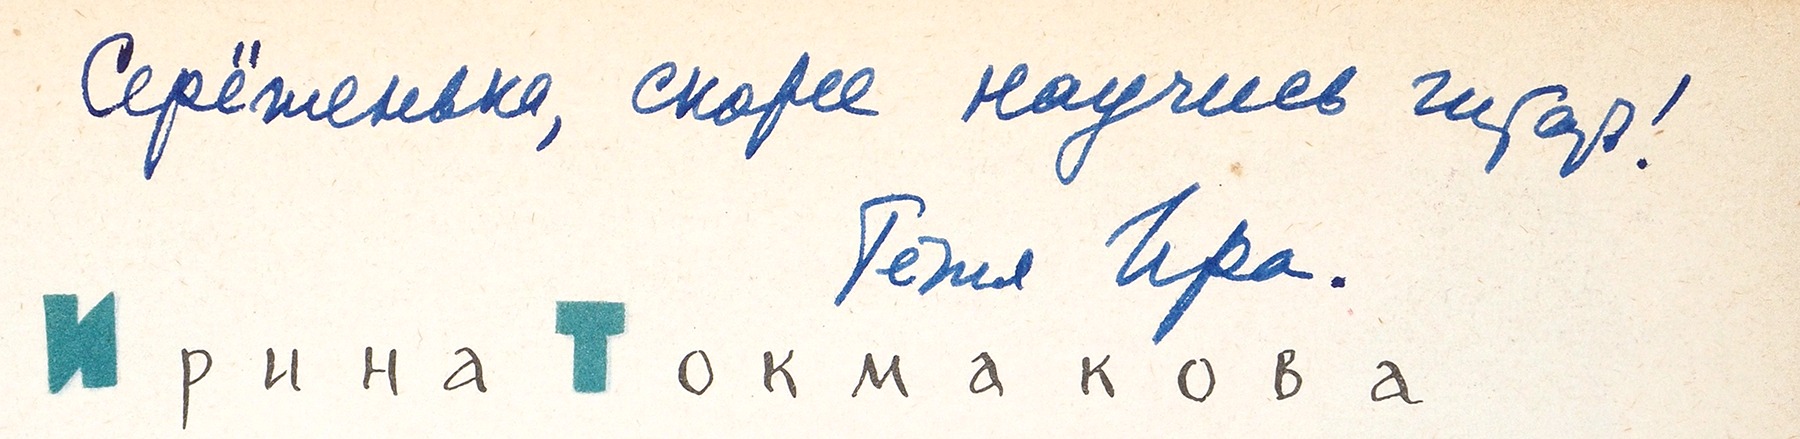 Серёженька, скорее научись читать!
Тётя Ира.
Ирина Токмакова